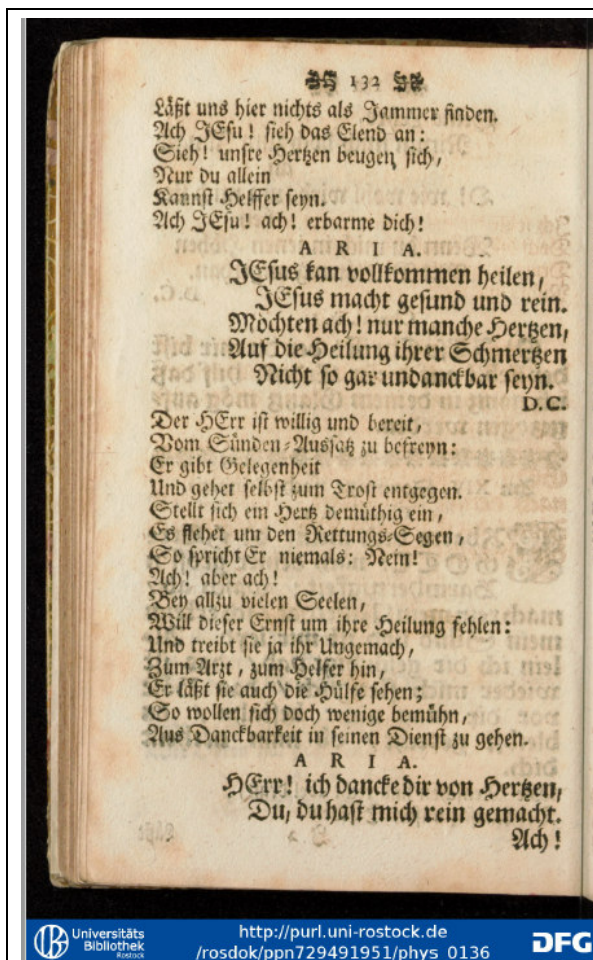 132
Läßt uns hier nichts als Jammer finden.
Ach JEsu! sieh das Elend an:
Sieh! unsre Hertzen beugen sich,
Nur du allein
Kannst Helffer seyn.
Ach JEsu! ach! erbarme dich!
ARIA.
JEsus kan vollkommen heilen,
JEsus macht gesund und rein.
Möchten ach! nur manche Hertzen,
Auf die Heilung ihrer Schmertzen
Nicht so gar undanckbar seyn.
D.C.
Der HErr ist willig und bereit,
Vom Sünden-Aussatz zu befreyn:
Er gibt Gelegenheit
Und gehet selbst zum Trost entgegen.
Stellt sich ein Hertz demüthig ein,
Es flehet um den Rettungs-Segen,
So spricht Er niemals: Nein!
Ach! aber ach!
Bey allzu vielen Seelen,
Will dieser Ernst um ihre Heilung fehlen:
Und treibt sie ja ihr Ungemach,
Zum Arzt, zum Helfer hin,
Er läßt sie auch die Hülfe sehen;
So wollen sich doch wenige bemühn,
Aus Danckbarkeit in seinen Dienst zu gehen.
ARIA.
HErr! ich dancke dir von Hertzen,
Du, du hast mich rein gemacht.
Ach!
Universitäts
Bibliothek
Rostock
http://purl.uni-rostock.de
/rosdok/ppn729491951/phys_0136
DFG